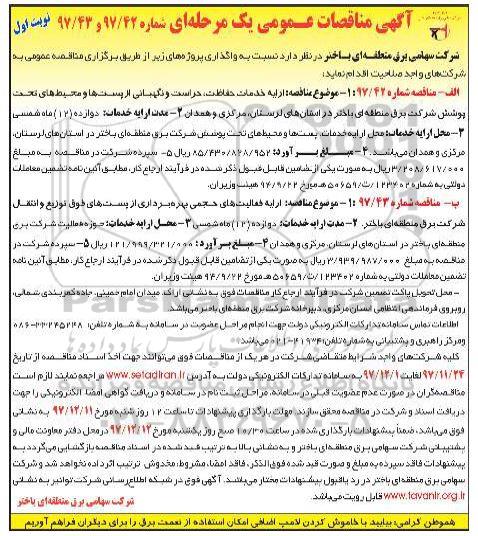 آگهی مناقصات عمومی یک مرحله‌ای شماره ۹۷/۴۲ و ۹۷/۴۳
نوبت اول
شرکت سهامی برق منطقه‌ای باختر در نظر دارد نسبت به واگذاری پروژه‌های زیر از طریق برگزاری مناقصه عمومی به
شرکت‌های واجد صلاحیت اقدام نماید:
الف- مناقصه شماره ۹۷/۴۲: ۱- موضوع مناقصه: ارایه خدمات حفاظت، حراست و نگهبانی از پست‌ها و محیط‌های تحت
پوشش شرکت برق منطقه‌ای باختر در استان‌های لرستان، مرکزی و همدان ۲- مدت ارایه خدمات: دوازده (۱۲) ماه شمسی
۳- محل ارایه خدمات: محل ارایه خدمات، پست‌ها و محیط‌های تحت پوشش شرکت برق منطقه‌ای باختر در استان‌های لرستان،
مرکزی و همدان می‌باشد. ۴- مبلغ برآورد: ۸۵/۴۳۰/۸۲۸/۹۵۲ ریال ۵- سپرده شرکت در مناقصه به مبلغ
۳/۲۰۸/۶۱۷/۰۰۰ ریال به صورت یکی از تضامین قابل قبول ذکر شده در فرآیند ارجاع کار، مطابق آئین نامه تضمین معاملات
دولتی به شماره ۱۲۳۴۰۲/ت۵۰۶۵۹هـ مورخ ۹۴/۹/۲۲ هیئت وزیران.
ب- مناقصه شماره ۹۷/۴۳: ۱- موضوع مناقصه: ارایه فعالیت‌های حجمی بهره‌برداری از پست‌های فوق توزیع و انتقال
شرکت برق منطقه‌ای باختر. ۲- مدت ارایه خدمات: دوازده (۱۲) ماه شمسی ۳- محل ارایه خدمات: حوزه فعالیت شرکت برق
منطقه‌ای باختر در استان‌های لرستان، مرکزی و همدان ۴- مبلغ برآورد: ۱۲۱/۹۹۹/۳۲۱/۰۰۰ ریال ۵- سپرده شرکت در
مناقصه به مبلغ ۳/۹۳۹/۹۸۷/۰۰۰ ریال به صورت یکی از تضامین قابل قبول ذکر شده در فرآیند ارجاع کار، مطابق آئین نامه
تضمین معاملات دولتی به شماره ۱۲۳۴۰۲/ت۵۰۶۵۹هـ مورخ ۹۴/۹/۲۲ هیئت وزیران.
- محل تحویل پاکت تضمین شرکت در فرآیند ارجاع کار مناقصات فوق به نشانی اراک، میدان امام خمینی، جاده کمربندی شمالی،
روبروی فرماندهی انتظامی استان مرکزی، دبیرخانه شرکت برق منطقه‌ای باختر می‌باشد.
اطلاعات تماس سامانه تدارکات الکترونیکی دولت جهت انجام مراحل عضویت در سامانه به شماره تلفن: ۳۳۲۴۵۲۴۸-۰۸۶
و مرکز راهبری و پشتیبانی به شماره تلفن: ۴۱۹۳۴-۰۲۱ می‌باشد.
کلیه شرکت‌های واجد شرایط متقاضی شرکت در هر یک از مناقصات فوق می‌توانند جهت اخذ اسناد مناقصه از تاریخ
۹۷/۱۱/۲۴ لغایت ۹۷/۱۲/۱ به سامانه تدارکات الکترونیکی دولت به آدرس www.setadiran.ir مراجعه نمایند لازم است
مناقصه‌گران در صورت عدم عضویت قبلی در سامانه، مراحل ثبت نام در سامانه و دریافت گواهی امضا الکترونیکی را جهت
دریافت اسناد و شرکت در مناقصه محقق سازند. مهلت بارگذاری پیشنهادات تا ساعت ۱۲ روز شنبه مورخ ۹۷/۱۲/۱۱ به نشانی
فوق می‌باشد، ضمناً پیشنهادات بارگذاری شده در ساعت ۱۰/۳۰ صبح روز یکشنبه مورخ ۹۷/۱۲/۱۲ در محل دفتر معاونت مالی و
پشتیبانی شرکت سهامی برق منطقه‌ای باختر و به نشانی بالا به ترتیب قید شده در اسناد مناقصه بازگشایی می‌گردد. به
پیشنهادات فاقد سپرده به مبلغ و صورت قید شده فوق‌الذکر، فاقد امضا، مشروط، مخدوش، ترتیب اثر داده نخواهد شد و شرکت
سهامی برق منطقه‌ای باختر در رد یا قبول پیشنهادات مختار می‌باشد. آگهی فوق در شبکه اطلاع‌رسانی شرکت توانیر به نشانی
www.tavanir.org.ir قابل رویت می‌باشد.
شرکت سهامی برق منطقه‌ای باختر
هموطن گرامی: بیایید با خاموش کردن لامپ اضافی امکان استفاده از نعمت برق را برای دیگران فراهم آوریم